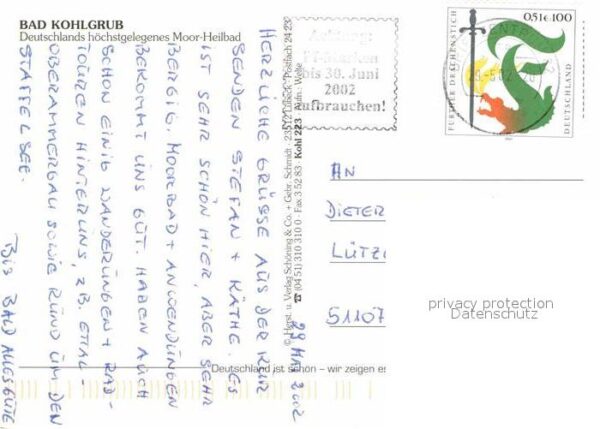 BAD KOHLGRUB
Deutschlands höchstgelegenes Moor-Heilbad
HERZLICHE GRÜSSE AUS DER KUR
SENDEN STEFAN + KÄTHE. ES
IST SEHR SCHÖN HIER, ABER SEHR
BERGIG. MOORBAD + ANWENDUNGEN
BEKOMMT UNS GUT. HABEN AUCH
SCHON EINIG WANDERUNGEN + RAD-
TOUREN HINTER UNS, Z.B. ETTAL -
OBERAMMERGAU SOWIE RUND UM DEN
STAFFELSEE.
BIS BALD ALLES GUTE,
29 MAI 2002
© Herst. u. Verlag Schöning & Co. + Gebr. Schmidt · 23512 Lübeck · Postfach 24 23
☎ (04 51) 310 310 0 · Fax 3 52 83 · Kohl 223 · Aufn.: Welte
Achtung!
-Marken
bis 30. Juni
2002
aufbrauchen!
0,51 € 100
FURTHER DRACHENSTICH
DEUTSCHLAND
AN
DIETER
LÜTZ
51107
privacy protection
Datenschutz
Deutschland ist schön – wir zeigen es